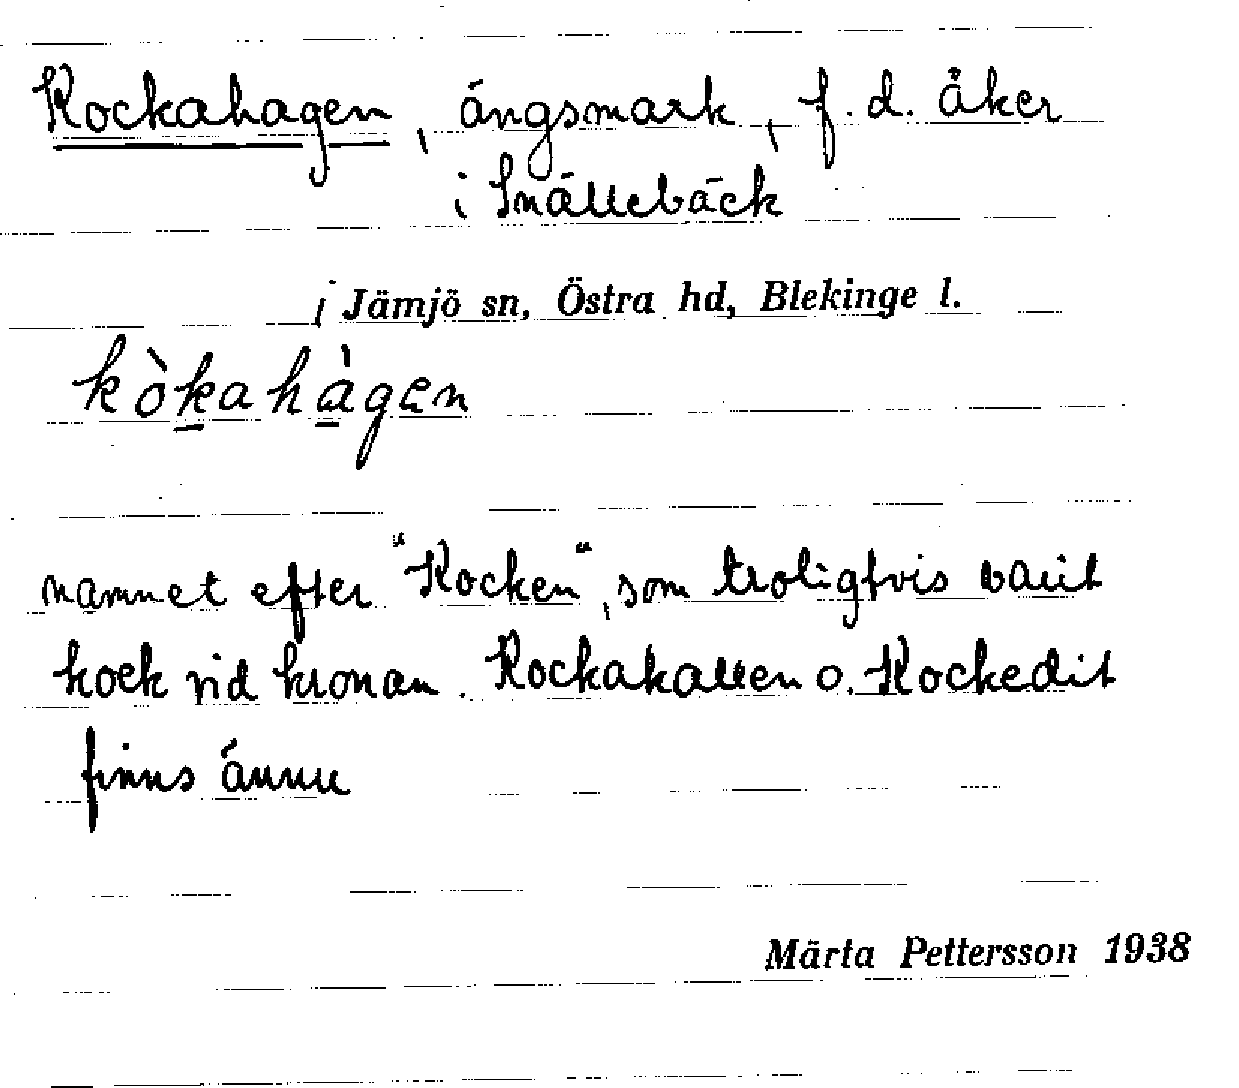 Kockahagen, ängsmark, f.d. åker
i Snällebäck
i Jämjö sn, Östra hd, Blekinge l.
kòkahàgen
namnet efter "Kocken", som troligtvis varit
kock vid kronan. Kockakallen o. Kockedit
finns ännu
Märta Pettersson 1938